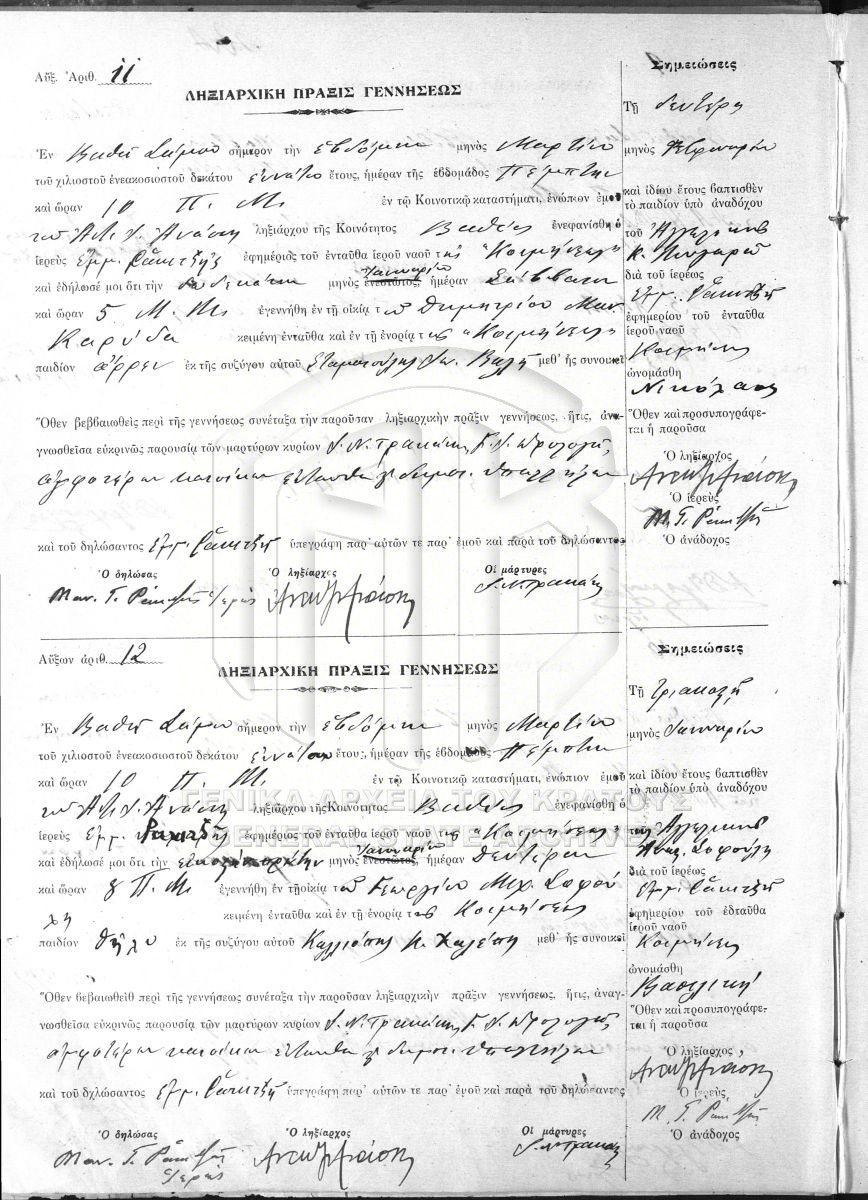 Αὔξ. Ἀριθ. 11
ΛΗΞΙΑΡΧΙΚΗ ΠΡΑΞΙΣ ΓΕΝΝΗΣΕΩΣ
Ἐν Βαθεῖ Σάμου σήμερον τὴν ἑβδόμην μηνὸς Μαρτίου
τοῦ χιλιοστοῦ ἐνεακοσιοστοῦ δεκάτου ἐννάτου ἔτους, ἡμέραν τῆς ἑβδομάδος Πέμπτην
καὶ ὥραν 10 Π. Μ. ἐν τῷ Κοινοτικῷ καταστήματι, ἐνώπιον ἐμοῦ
τοῦ ληξιάρχου τῆς Κοινότητος Βαθέος ἐνεφανίσθη ὁ
ἱερεὺς Ἐμμ. ἐφημέριος τοῦ ἐνταῦθα ἱεροῦ ναοῦ της Κοιμήσεως
καὶ ἐδήλωσέ μοι ὅτι τὴν δωδεκάτην μηνὸς ἐνεστῶτος, Ἰανουαρίου ἡμέραν Σάββατον
καὶ ὥραν 5 Μ. Μ. ἐγεννήθη ἐν τῇ οἰκίᾳ τοῦ Δημητρίου Μαν.
Καρύδα κειμένῃ ἐνταῦθα καὶ ἐν τῇ ἐνορίᾳ της Κοιμήσεως
παιδίον ἄρρεν ἐκ τῆς συζύγου αὐτοῦ Σταματούλης μεθ᾽ ἧς συνοικεῖ
Ὅθεν βεββαιωθεὶς περὶ τῆς γεννήσεως συνέταξα τὴν παροῦσαν ληξιαρχικὴν πρᾶξιν γεννήσεως, ἥτις, ἀνα-
γνωσθεῖσα εὐκρινῶς παρουσίᾳ τῶν μαρτύρων κυρίων
ἀμφοτέρων κατοίκων ἐνταῦθα
καὶ τοῦ δηλώσαντος Ἐμμ. ὑπεγράφη παρ᾽ αὐτῶν τε παρ᾽ ἐμοῦ καὶ παρὰ τοῦ δηλώσαντος
Ὁ δηλώσας Ὁ ληξίαρχος Οἱ μάρτυρες
Σημειώσεις
Τῇ δευτέρᾳ
μηνὸς Φεβρουαρίου
καὶ ἰδίου ἔτους βαπτισθὲν
τὸ παιδίον ὑπὸ ἀναδόχου
τοῦ Ἀγγελικῆς
διὰ τοῦ ἱερέως
Ἐμμ.
ἐφημερίου τοῦ ἐνταῦθα
ἱεροῦ ναοῦ
Κοιμήσεως
ὠνομάσθη
Νικόλαος
Ὅθεν καὶ προσυπογράφε-
ται ἡ παροῦσα
Ὁ ληξίαρχος
Ὁ ἱερεὺς
Ὁ ἀνάδοχος
Αὔξων ἀριθ. 12
ΛΗΞΙΑΡΧΙΚΗ ΠΡΑΞΙΣ ΓΕΝΝΗΣΕΩΣ
Ἐν Βαθεῖ Σάμου σήμερον τὴν ἑβδόμην μηνὸς Μαρτίου
τοῦ χιλιοστοῦ ἐνεακοσιοστοῦ δεκάτου ἐννάτου ἔτους, ἡμέραν τῆς ἑβδομάδος Πέμπτην
καὶ ὥραν 10 Π. Μ. ἐν τῷ Κοινοτικῷ καταστήματι, ἐνώπιον ἐμοῦ
τοῦ ληξιάρχου τῆς Κοινότητος Βαθέος ἐνεφανίσθη ὁ
ἱερεὺς Ἐμμ. ἐφημέριος τοῦ ἐνταῦθα ἱεροῦ ναοῦ της Κοιμήσεως
καὶ ἐδήλωσέ μοι ὅτι τὴν μηνὸς ἐνεστῶτος, Ἰανουαρίου ἡμέραν Δευτέραν
καὶ ὥραν 8 Π. Μ. ἐγεννήθη ἐν τῇ οἰκίᾳ τοῦ Γεωργίου Μιχ. Σοφού
λη κειμένη ἐνταῦθα καὶ ἐν τῇ ἐνορίᾳ της Κοιμήσεως
παιδίον θῆλυ ἐκ τῆς συζύγου αὐτοῦ Καλλιόπης Κ. Χαλέπη μεθ᾽ ἧς συνοικεῖ
Ὅθεν βεβαιωθεὶθ περὶ τῆς γεννήσεως συνέταξα τὴν παροῦσαν ληξιαρχικὴν πρᾶξιν γεννήσεως, ἥτις, ἀναγ-
νωσθεῖσα εὐκρινῶς παρουσίᾳ τῶν μαρτύρων κυρίων
ἀμφοτέρων κατοίκων ἐνταῦθα
καὶ τοῦ δχλώσαντος Ἐμμ. ὑπεγράφη παρ᾽ αὐτῶν τε παρ᾽ ἐμοῦ καὶ παρὰ τοῦ δηλώσαντος
Ὁ δηλώσας Ὁ ληξίαρχος Οἱ μάρτυρες
Σημειώσεις
Τῇ τριακοστῇ
μηνὸς Ἰανουαρίου
καὶ ἰδίου ἔτους βαπτισθὲν
τὸ παιδίον ὑπὸ ἀναδόχου
της Ἀγγελικῆς
Ἀναγ. Σοφούλη
διὰ τοῦ ἱερέως
Ἐμμ.
ἐφημερίου τοῦ ἐδταῦθα
ἱεροῦ ναοῦ
Κοιμήσεως
ὠνομάσθη
Βασιλική
Ὅθεν καὶ προσυπογράφε-
ται ἡ παροῦσα
Ὁ ληξίαρχος
Ὁ ἱερεὺς
Ὁ ἀνάδοχος
ΓΕΝΙΚΑ ΑΡΧΕΙΑ ΤΟΥ ΚΡΑΤΟΥΣ
GENERAL STATE ARCHIVES